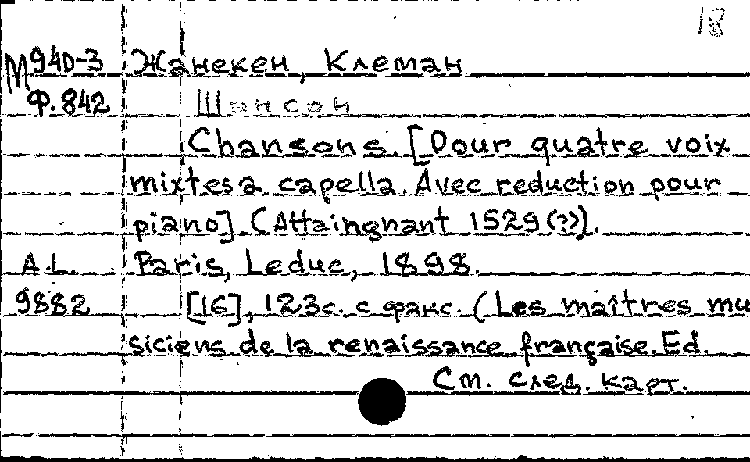 18
М940-3 Жанекен, Клеман
Ф.842 Шансон
Chansons. [Pour quatre voix
mixtes a capella. Avec reduction pour
piano]. (Attaingnant 1529(?)).
A.L. Paris, Leduc, 1898.
9882 [16], 123с. с факс. (Les maîtres mu
siciens de la renaissance française. Ed.
См. след. карт.